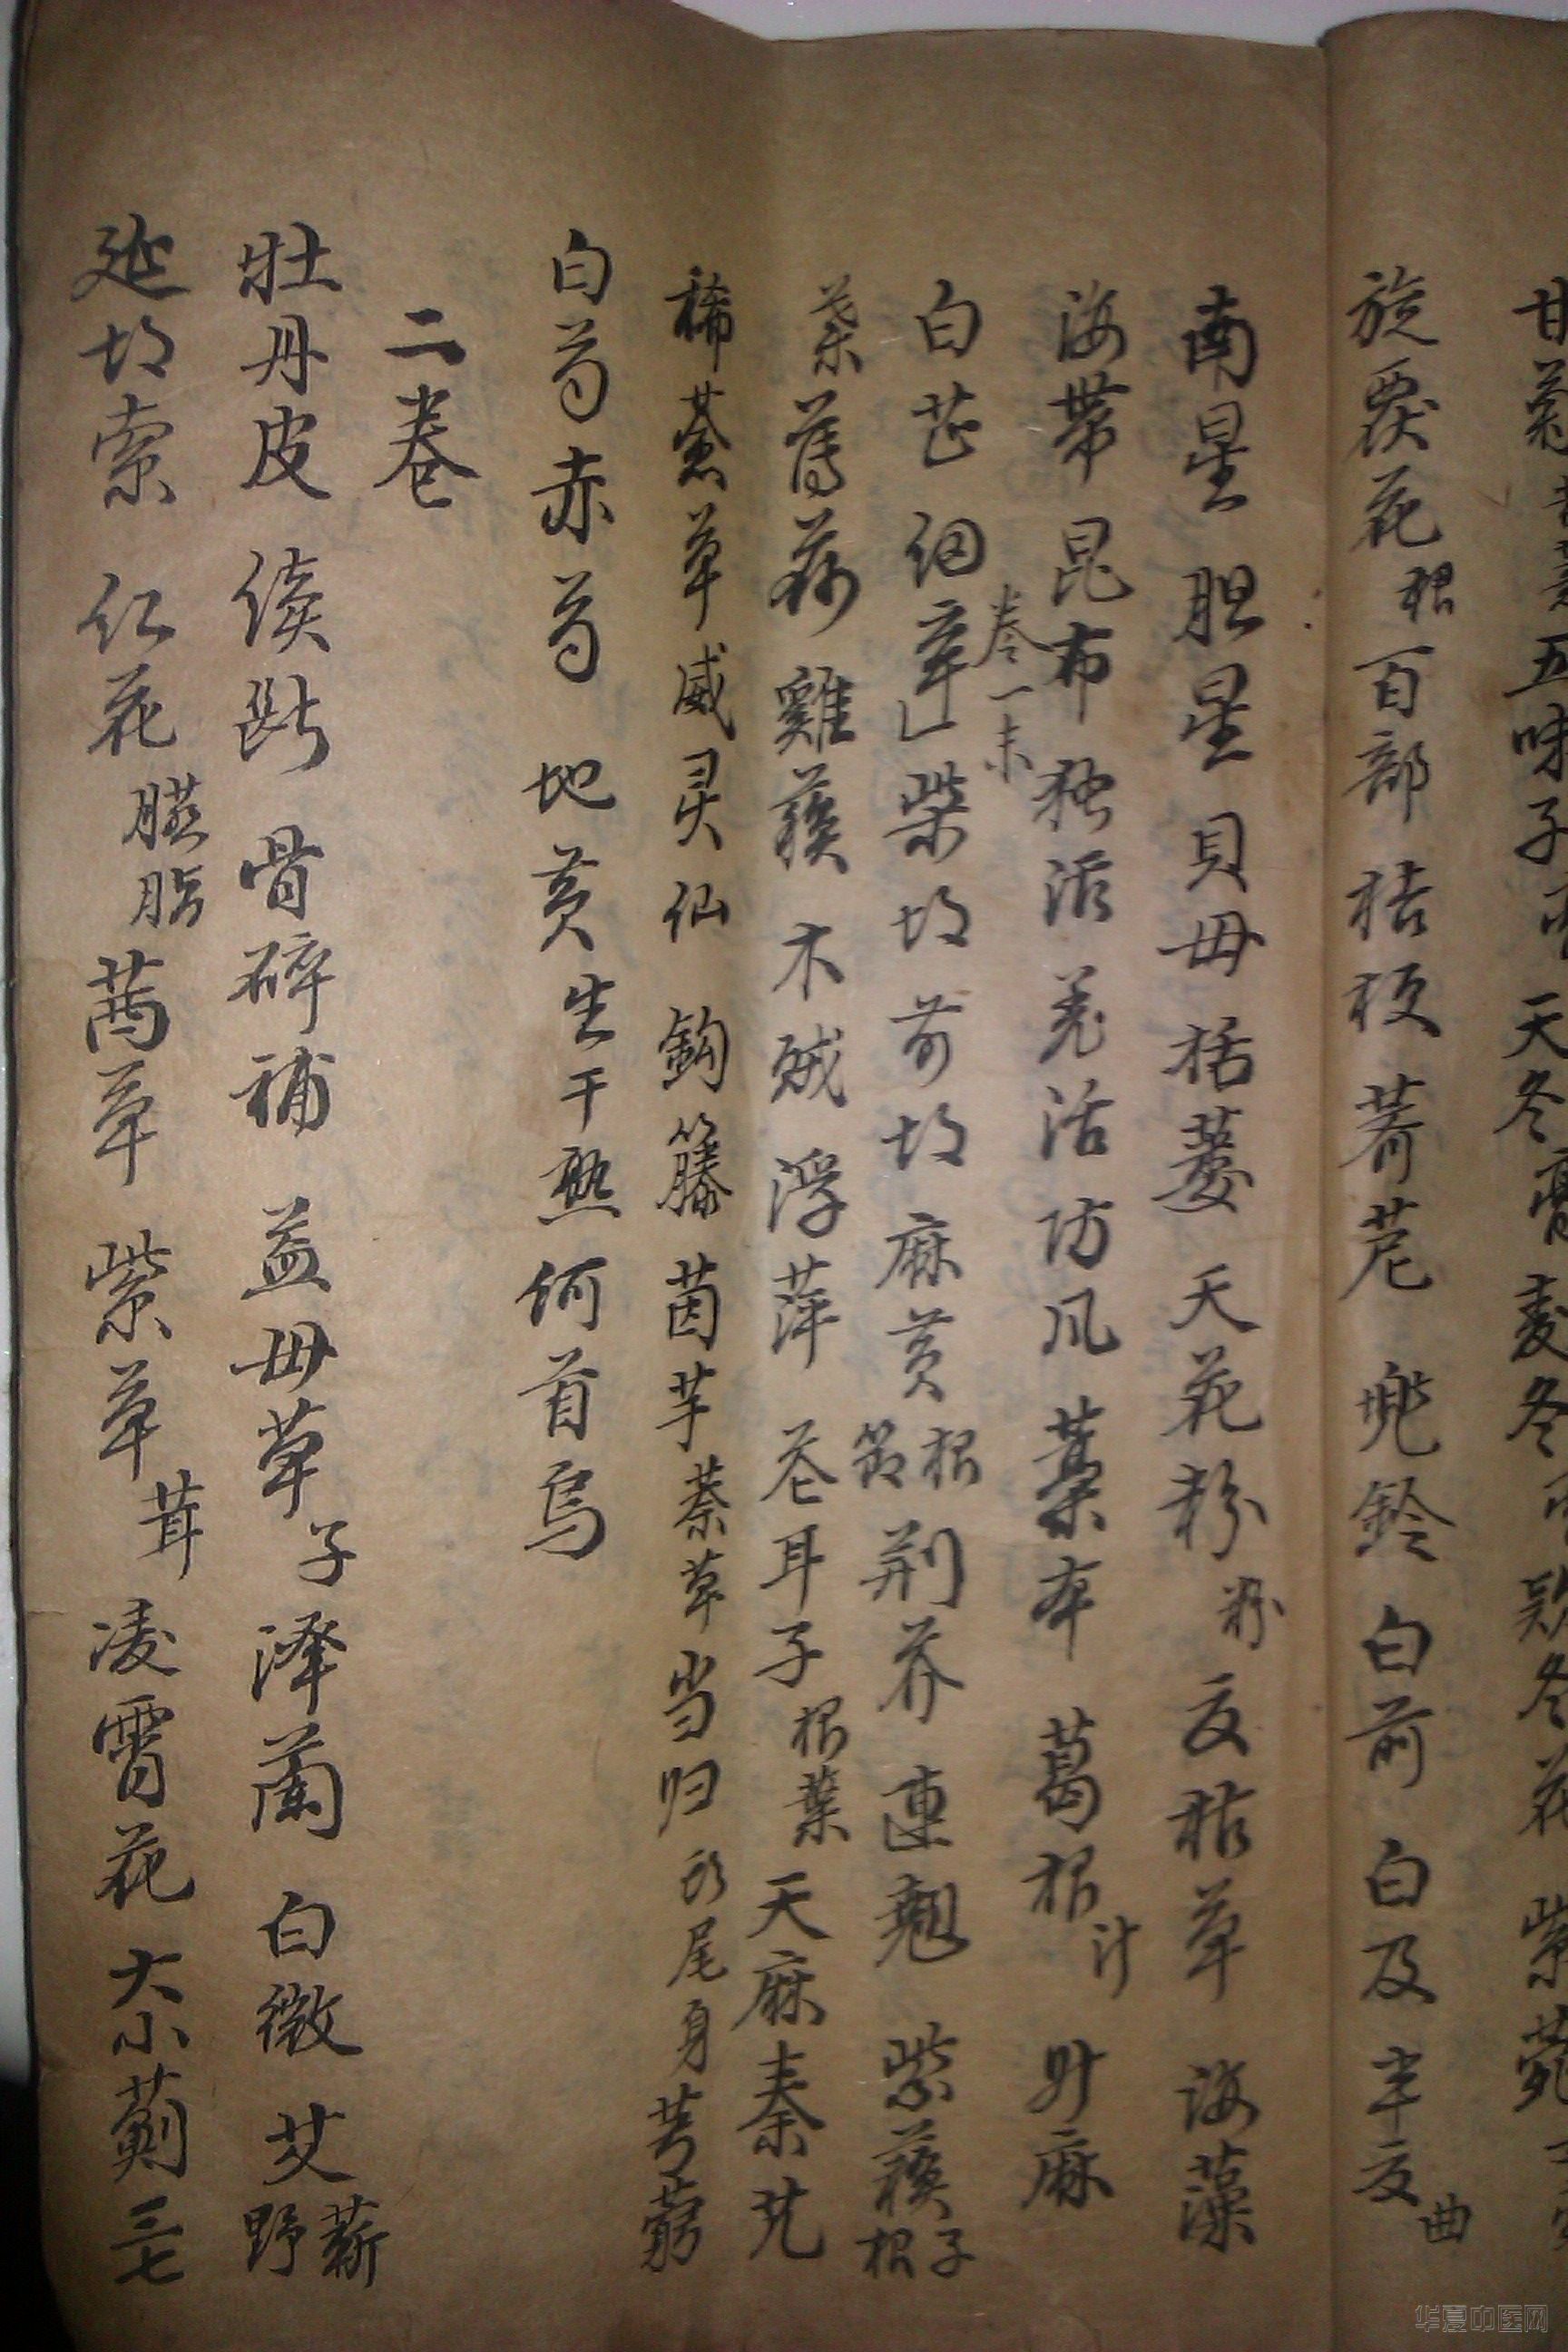 甘菊 五味子 天冬膏 麦冬 款冬花 紫菀
旋覆花根 百部 桔梗 薺苨 兜鈴 白前 白及 半夏曲
南星 胆星 貝母 栝蔞 天花粉粉 夏枯草 海藻
海帶 昆布 獨活 羌活 防风 藁本 葛根汁 升麻
卷一末
白芷 细辛 柴胡 前胡 麻黄根節 荆芥 連翹 紫蘇根子
葉 薄荷 雞蘇 木賊 浮萍 苍耳子根葉 天麻 秦艽
稀薟草 威灵仙 鈎籐 茵芋 蔡草 当归 尾身 芎藭
白芍 赤芍 地黄生干熟 何首烏
二卷
牡丹皮 续断 骨碎補 益母草子 澤蘭 白微 艾野蘄
延胡索 红花 臙脂 茜草 紫草茸 凌霄花 大小薊 三七
华夏中医网